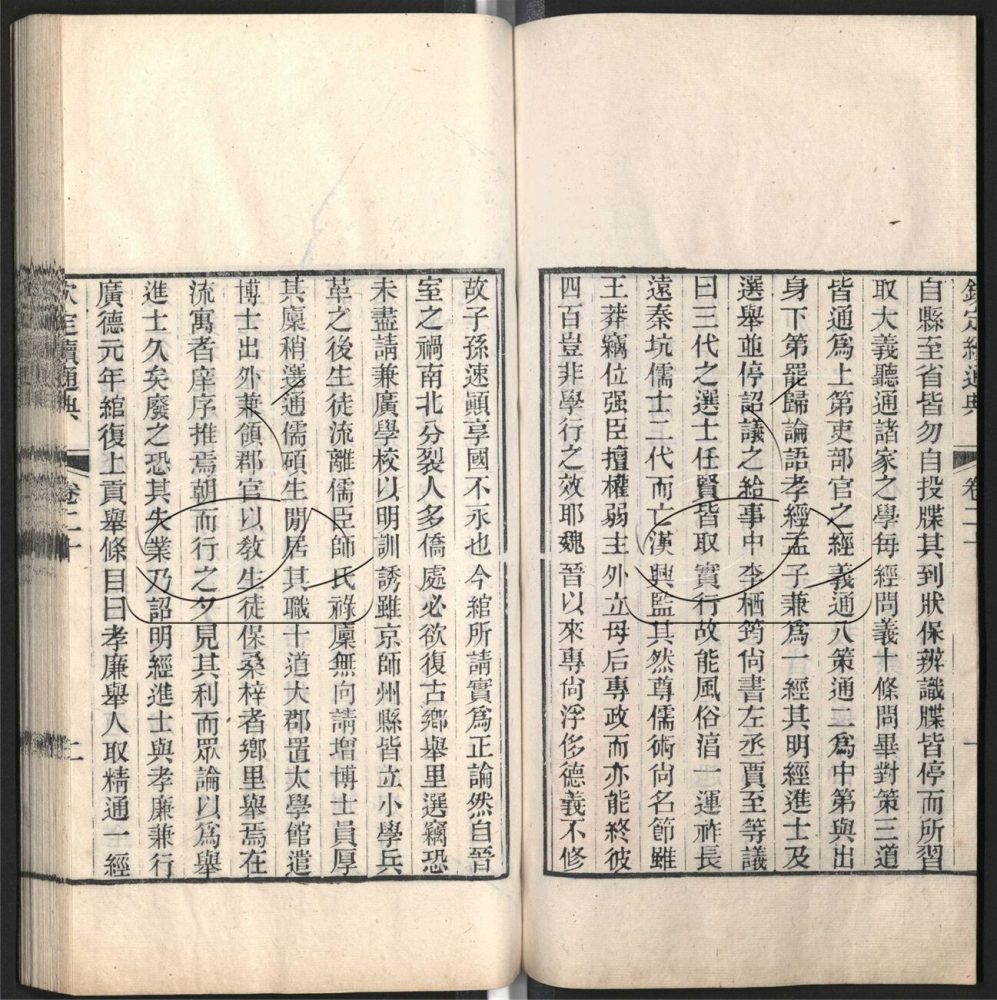 欽定續通典 卷二十 一
自縣至省皆勿自投牒其到狀保辨識牒皆停而所習
取大義聽通諸家之學每經問義十條問畢對策三道
皆通爲上第吏部官之經義通八策通二爲中第與出
身下第罷歸論語孝經孟子兼爲一經其明經進士及
選舉並停詔議之給事中李栖筠尙書左丞賈至等議
曰三代之選士任賢皆取實行故能風俗淳一運祚長
遠秦坑儒士二代而亡漢興監其然尊儒術尙名節雖
王莽竊位强臣擅權弱主外立母后專政而亦能終彼
四百豈非學行之效耶魏晉以來專尙浮侈德義不修
故子孫速顚享國不永也今綰所請實爲正論然自晉
室之禍南北分裂人多僑處必欲復古鄉舉里選竊恐
未盡請兼廣學校以明訓誘雖京師州縣皆立小學兵
革之後生徒流離儒臣師氏祿廩無向請增博士員厚
其廩稍選通儒碩生閒居其職十道大郡置太學館遣
博士出外兼領郡官以敎生徒保桑梓者鄉里舉焉在
流寓者庠序推焉朝而行之夕見其利而眾論以爲舉
進士久矣廢之恐其失業乃詔明經進士與孝廉兼行
廣德元年綰復上貢舉條目曰孝廉舉人取精通一經
欽定續通典 卷二十 二